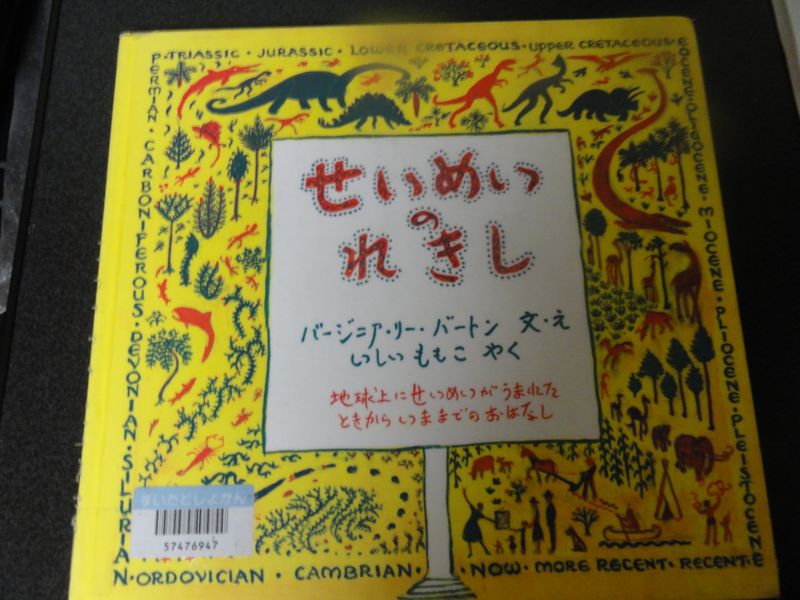 TRIASSIC · JURASSIC · LOWER CRETACEOUS · UPPER CRETACEOUS ·
EOCENE · OLIGOCENE · MIOCENE · PLIOCENE · PLEISTOCENE
PERMIAN · CARBONIFEROUS · DEVONIAN · SILURIAN
せいめい
の
れきし
バージニア・リー・バートン 文・え
いしい ももこ やく
地球上にせいめいがうまれた
ときからいままでのおはなし
すいたとしょかん
57476947
ORDOVICIAN · CAMBRIAN ·
· NOW · MORE RECENT · RECENT ·